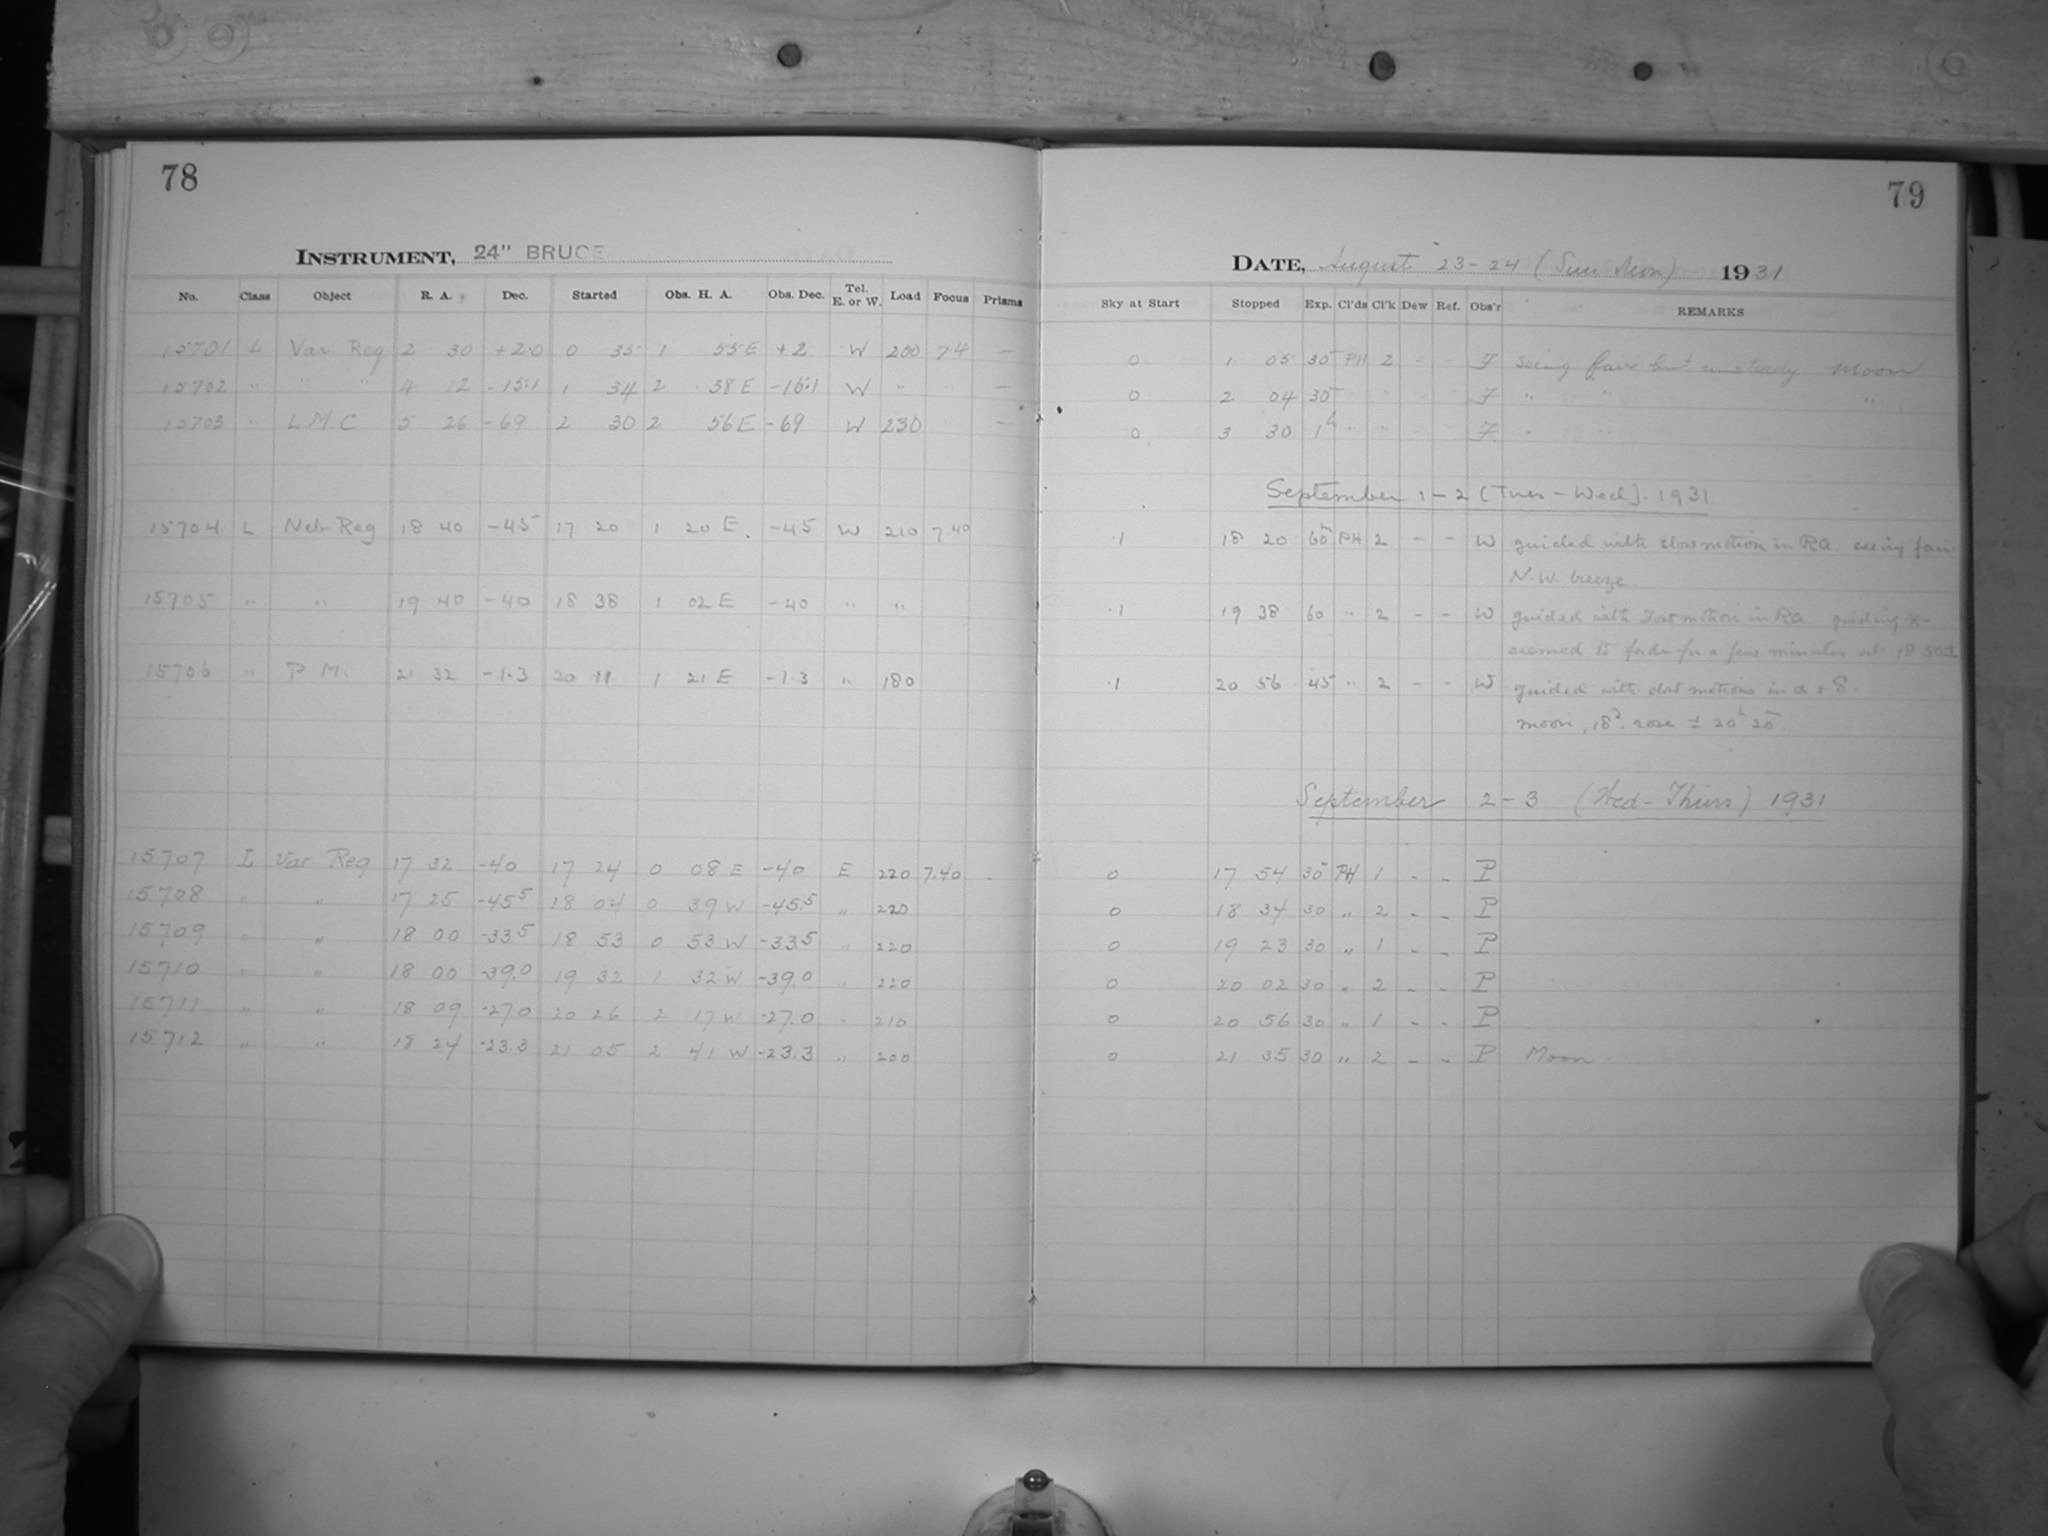 78
79
INSTRUMENT, 24" BRUCE
DATE, August 23-24 (Sun Mon) 1931
No. Class Object R. A. Dec. Started Obs. H. A. Obs. Dec. Tel. E. or W. Load Focus Prisms Sky at Start Stopped Exp. Cl'ds Cl'k Dew Ref. Obs'r REMARKS
15701 L Var. Reg 2 30 +2.0 0 35 1 55 E +2 W 200 7.4 — 0 1 05 30 PH 2 - - F seeing fair but unsteady Moon
15702 " " " 4 12 -15.1 1 34 2 38 E -15.1 W " — 0 2 04 30 F " " "
15703 " L M C 5 26 -69 2 30 2 56 E -69 W 230 — 0 3 30 1h " " F
September 1-2 (Tues-Wed). 1931
15704 L Neb Reg 18 40 -45 17 20 1 20 E. -45 W 210 7.40 .1 18 20 60 PH 2 - - W guided with slow motion in RA seeing fair
N.W. breeze
15705 " " 19 40 -40 18 38 1 02 E -40 " " .1 19 38 60 " 2 - - W guided with slow motion in RA guiding *
seemed to fade for a few minutes at 18
15706 " P M. 21 32 -1.3 20 11 1 21 E -1.3 " 180 .1 20 56 45 " 2 - - W guided with slow motions in α + δ
moon, rose ± 20h 20
September 2-3 (Wed-Thurs) 1931
15707 L Var Reg 17 32 -40 17 24 0 08 E -40 E 220 7.40 0 17 54 30 PH 1 - - P
15708 " " 17 25 -45.5 18 04 0 39 W -45.5 " 220 0 18 34 30 " 2 - - P
15709 " " 18 00 -33.5 18 53 0 53 W -33.5 " 220 0 19 23 30 " 1 - - P
15710 " " 18 00 -39.0 19 32 1 32 W -39.0 " 220 0 20 02 30 " 2 - - P
15711 " " 18 09 -27.0 20 26 2 17 W -27.0 " 210 0 20 56 30 " 1 - - P
15712 " " 18 24 -23.3 21 05 2 41 W -23.3 " 200 0 21 35 30 " 2 - - P Moon